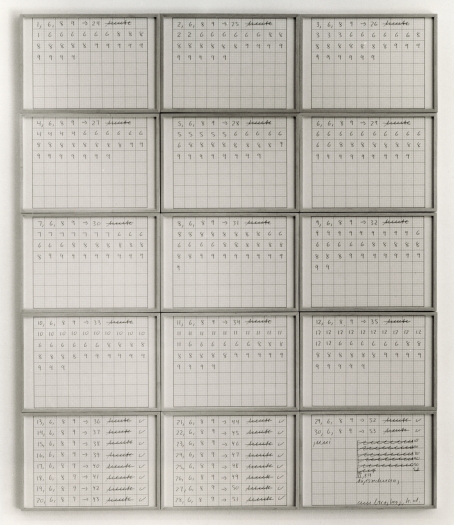 1, 6, 8 9 → 24 heute
1 6 6 6 6 6 6 8 8 8
8 8 8 8 8 9 9 9 9 9
9 9 9 9
2, 6, 8 9 → 25 heute
2 2 6 6 6 6 6 6 8 8
8 8 8 8 8 8 9 9 9 9
9 9 9 9 9
3, 6, 8 9 → 26 heute
3 3 3 6 6 6 6 6 6 8
8 8 8 8 8 8 8 9 9 9
9 9 9 9 9 9
4, 6, 8 9 → 27 heute
4 4 4 4 6 6 6 6 6 6
8 8 8 8 8 8 8 8 9 9
9 9 9 9 9 9 9
5, 6, 8 9 → 28 heute
5 5 5 5 5 6 6 6 6 6
6 8 8 8 8 8 8 8 8 9
9 9 9 9 9 9 9 9
6, 6, 8 9 → 29 heute
6 6 6 6 6 6 6 6 6 6
6 6 8 8 8 8 8 8 8 8
9 9 9 9 9 9 9 9 9
7, 6, 8 9 → 30 heute
7 7 7 7 7 7 7 6 6 6
6 6 6 8 8 8 8 8 8 8
8 9 9 9 9 9 9 9 9 9
8, 6, 8 9 → 31 heute
8 8 8 8 8 8 8 8 6 6
6 6 6 6 8 8 8 8 8 8
8 8 9 9 9 9 9 9 9 9
9
9, 6, 8 9 → 32 heute
9 9 9 9 9 9 9 9 9 6
6 6 6 6 6 8 8 8 8 8
8 8 8 9 9 9 9 9 9 9
9 9
10, 6, 8 9 → 33 heute
10 10 10 10 10 10 10 10 10 10
6 6 6 6 6 6 8 8 8 8
8 8 8 8 9 9 9 9 9 9
9 9 9
11, 6, 8 9 → 34 heute
11 11 11 11 11 11 11 11 11 11
11 6 6 6 6 6 6 8 8 8
8 8 8 8 8 9 9 9 9 9
9 9 9 9
12, 6, 8 9 → 35 heute
12 12 12 12 12 12 12 12 12 12
12 12 6 6 6 6 6 6 8 8
8 8 8 8 8 8 9 9 9 9
9 9 9 9 9
13, 6, 8 9 → 36 heute ✓
14, 6, 8 9 → 37 heute ✓
15, 6, 8 9 → 38 heute ✓
16, 6, 8 9 → 39 heute ✓
17, 6, 8 9 → 40 heute ✓
18, 6, 8 9 → 41 heute ✓
19, 6, 8 9 → 42 heute ✓
20, 6, 8 9 → 43 heute ✓
21, 6, 8 9 → 44 heute ✓
22, 6, 8 9 → 45 heute ✓
23, 6, 8 9 → 46 heute ✓
24, 6, 8 9 → 47 heute ✓
25, 6, 8 9 → 48 heute ✓
26, 6, 8 9 → 49 heute ✓
27, 6, 8 9 → 50 heute ✓
28, 6, 8 9 → 51 heute ✓
29, 6, 8 9 → 52 heute ✓
30, 6, 8 9 → 53 heute ✓